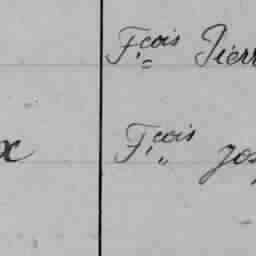 Fçois Pierr
x Fçois Jos